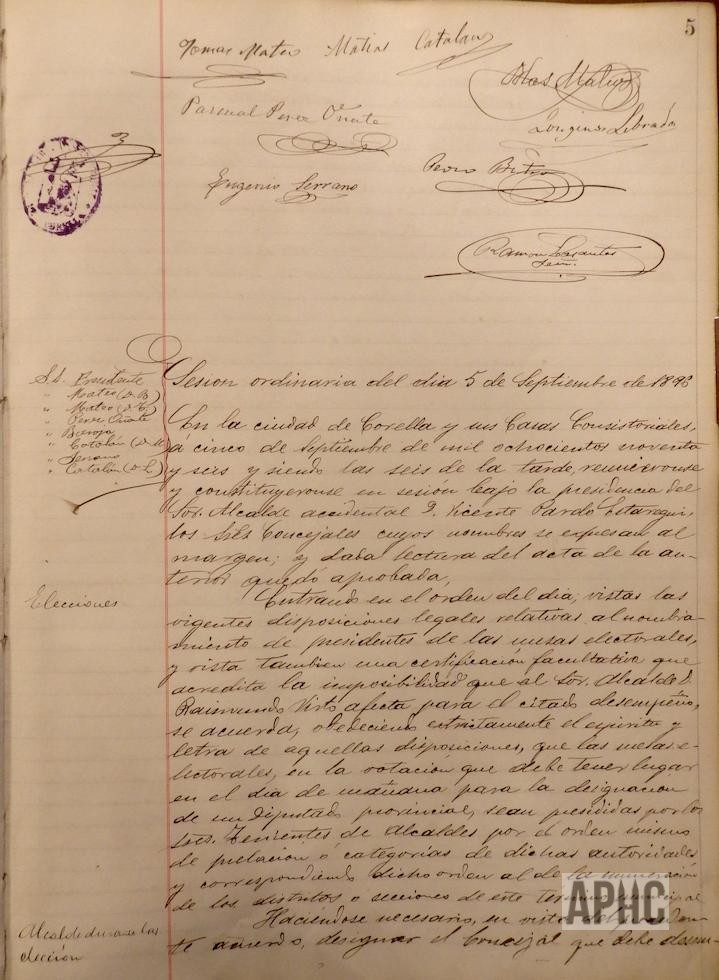 5
Tomas Mateo Matias Catalan
Blas Mateo
Pascual Perez Oñate
Longinos Librada
Eugenio Serrano
Pedro
Ramon Lasantas
Srio.
Sesion ordinaria del dia 5 de Septiembre de 1896
S.S. Presidente
" Mateo (D. B)
" Mateo (D. T)
" Perez Oñate
"
" Catalán (D. M)
" Serrano
" Catalán (D. L)
En la ciudad de Corella y sus Casas Consistoriales,
á cinco de Septiembre de mil ochocientos noventa
y seis y siendo las seis de la tarde, reunieronse
y constituyeronse en sesión bajo la presidencia del
Sor. Alcalde accidental D. Vicente Pardo
los Sres Concejales cuyos nombres se expresan al
margen; y dada lectura del acta de la an-
terior quedó aprobada,
Elecciones
Entrando en el orden del dia, vistas las
vigentes disposiciones legales relativas al nombra-
miento de presidentes de las mesas electorales,
y vista tambien una certificación facultativa que
acredita la imposibilidad que al Sor. Alcalde D.
Raimundo Virto afecta para el citado desempeño,
se acuerda, obedeciendo estrictamente el espiritu y
letra de aquellas disposiciones, que las mesas e-
lectorales, en la votación que debe tener lugar
en el dia de mañana para la designación
de un Diputado provincial, sean presididas por los
Sres. Tenientes de Alcaldes por el orden mismo
de prelación ó categorías de dichas autoridades
y correspondiendo dicho orden al de la numeración
de los distritos o secciones de este termino municipal
Alcalde durante las
elección
Haciendose necesario, en vista del preceden-
te acuerdo, designar el Concejal que debe desem-
APHC